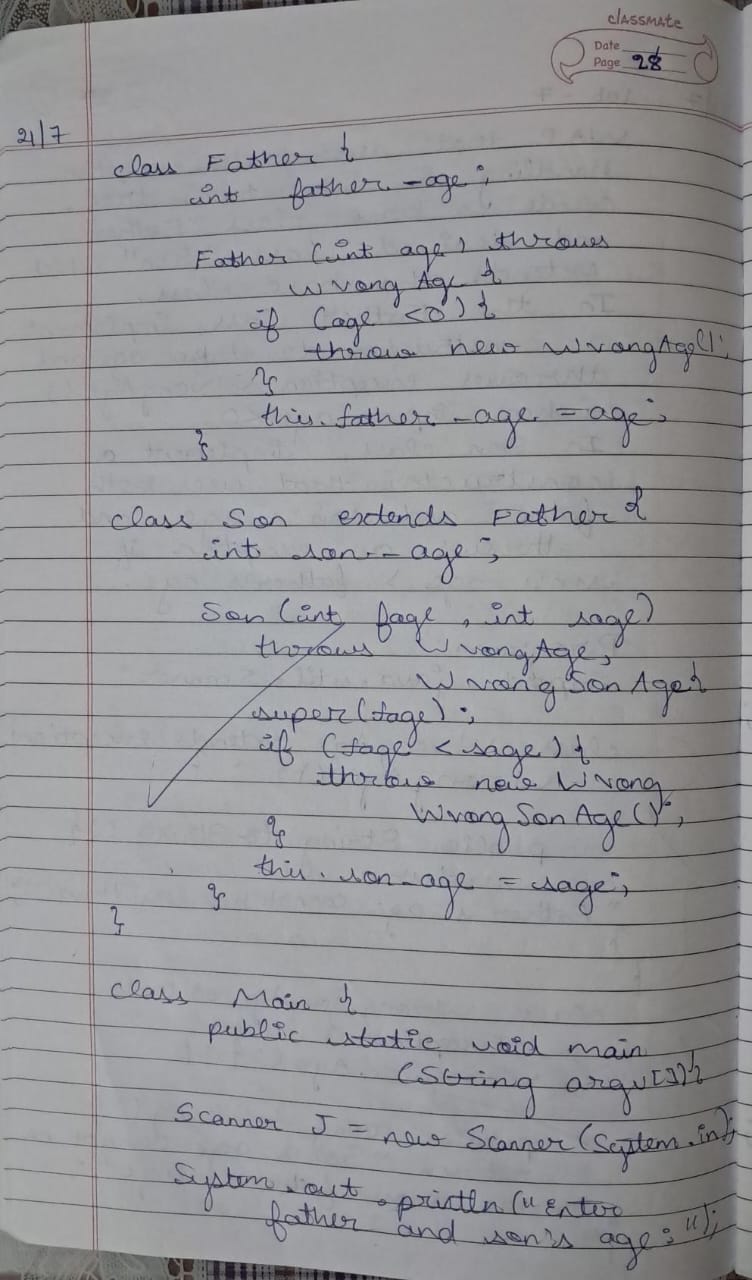 classmate
Date
Page 28
21/7
class Father {
int father_age;
Father (int age) throws
Wrong Age {
if (age <0) {
throw new WrongAge();
}
this.father_age = age;
}
class Son extends Father {
int son_age;
Son (int fage, int sage)
throws WrongAge,
WrongSonAge{
super(fage);
if (fage < sage) {
throw new Wrong
WrongSonAge();
}
this.son_age = sage;
}
}
class Main {
public static void main
(String argv[]){
Scanner J = new Scanner (System.in);
System.out.println ("Enter
father and son's age:");